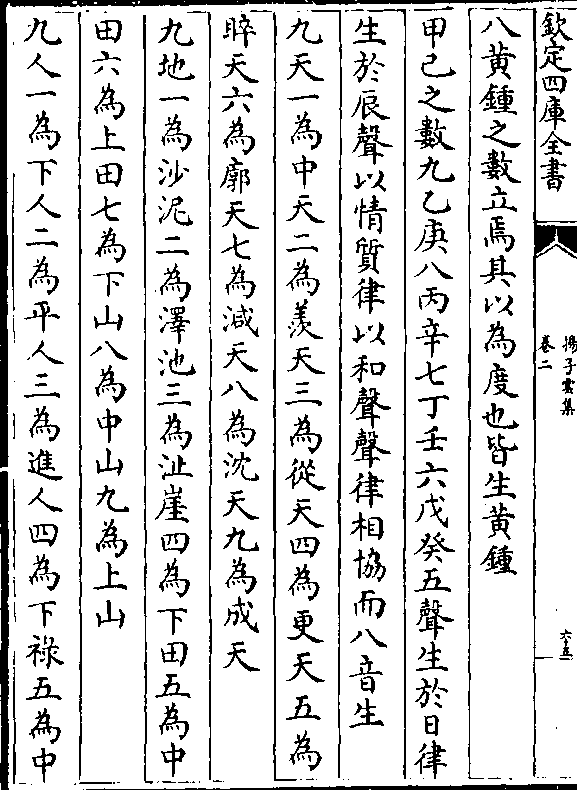 欽定四庫全書
揚子雲集
卷二
六十五
八黄鍾之數立焉其以為度也皆生黄鍾
甲己之數九乙庚八丙辛七丁壬六戊癸五聲生於日律
生於辰聲以情質律以和聲聲律相協而八音生
九天一為中天二為羨天三為從天四為更天五為
睟天六為廓天七為減天八為沈天九為成天
九地一為沙泥二為澤池三為沚崖四為下田五為中
田六為上田七為下山八為中山九為上山
九人一為下人二為平人三為進人四為下祿五為中